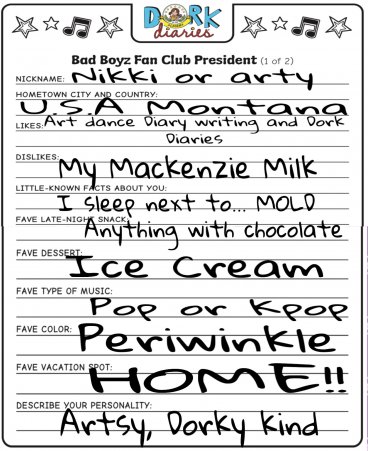 DORK
diaries
Bad Boyz Fan Club President (1 of 2)
NICKNAME: Nikki or arty
HOMETOWN CITY AND COUNTRY:
U.S.A Montana
LIKES: Art dance Diary writing and Dork
Diaries
DISLIKES:
My Mackenzie Milk
LITTLE-KNOWN FACTS ABOUT YOU:
I sleep next to... MOLD
FAVE LATE-NIGHT SNACK:
Anything with chocolate
FAVE DESSERT:
Ice Cream
FAVE TYPE OF MUSIC:
Pop or Kpop
FAVE COLOR:
Periwinkle
FAVE VACATION SPOT:
HOME!!
DESCRIBE YOUR PERSONALITY:
Artsy, Dorky kind